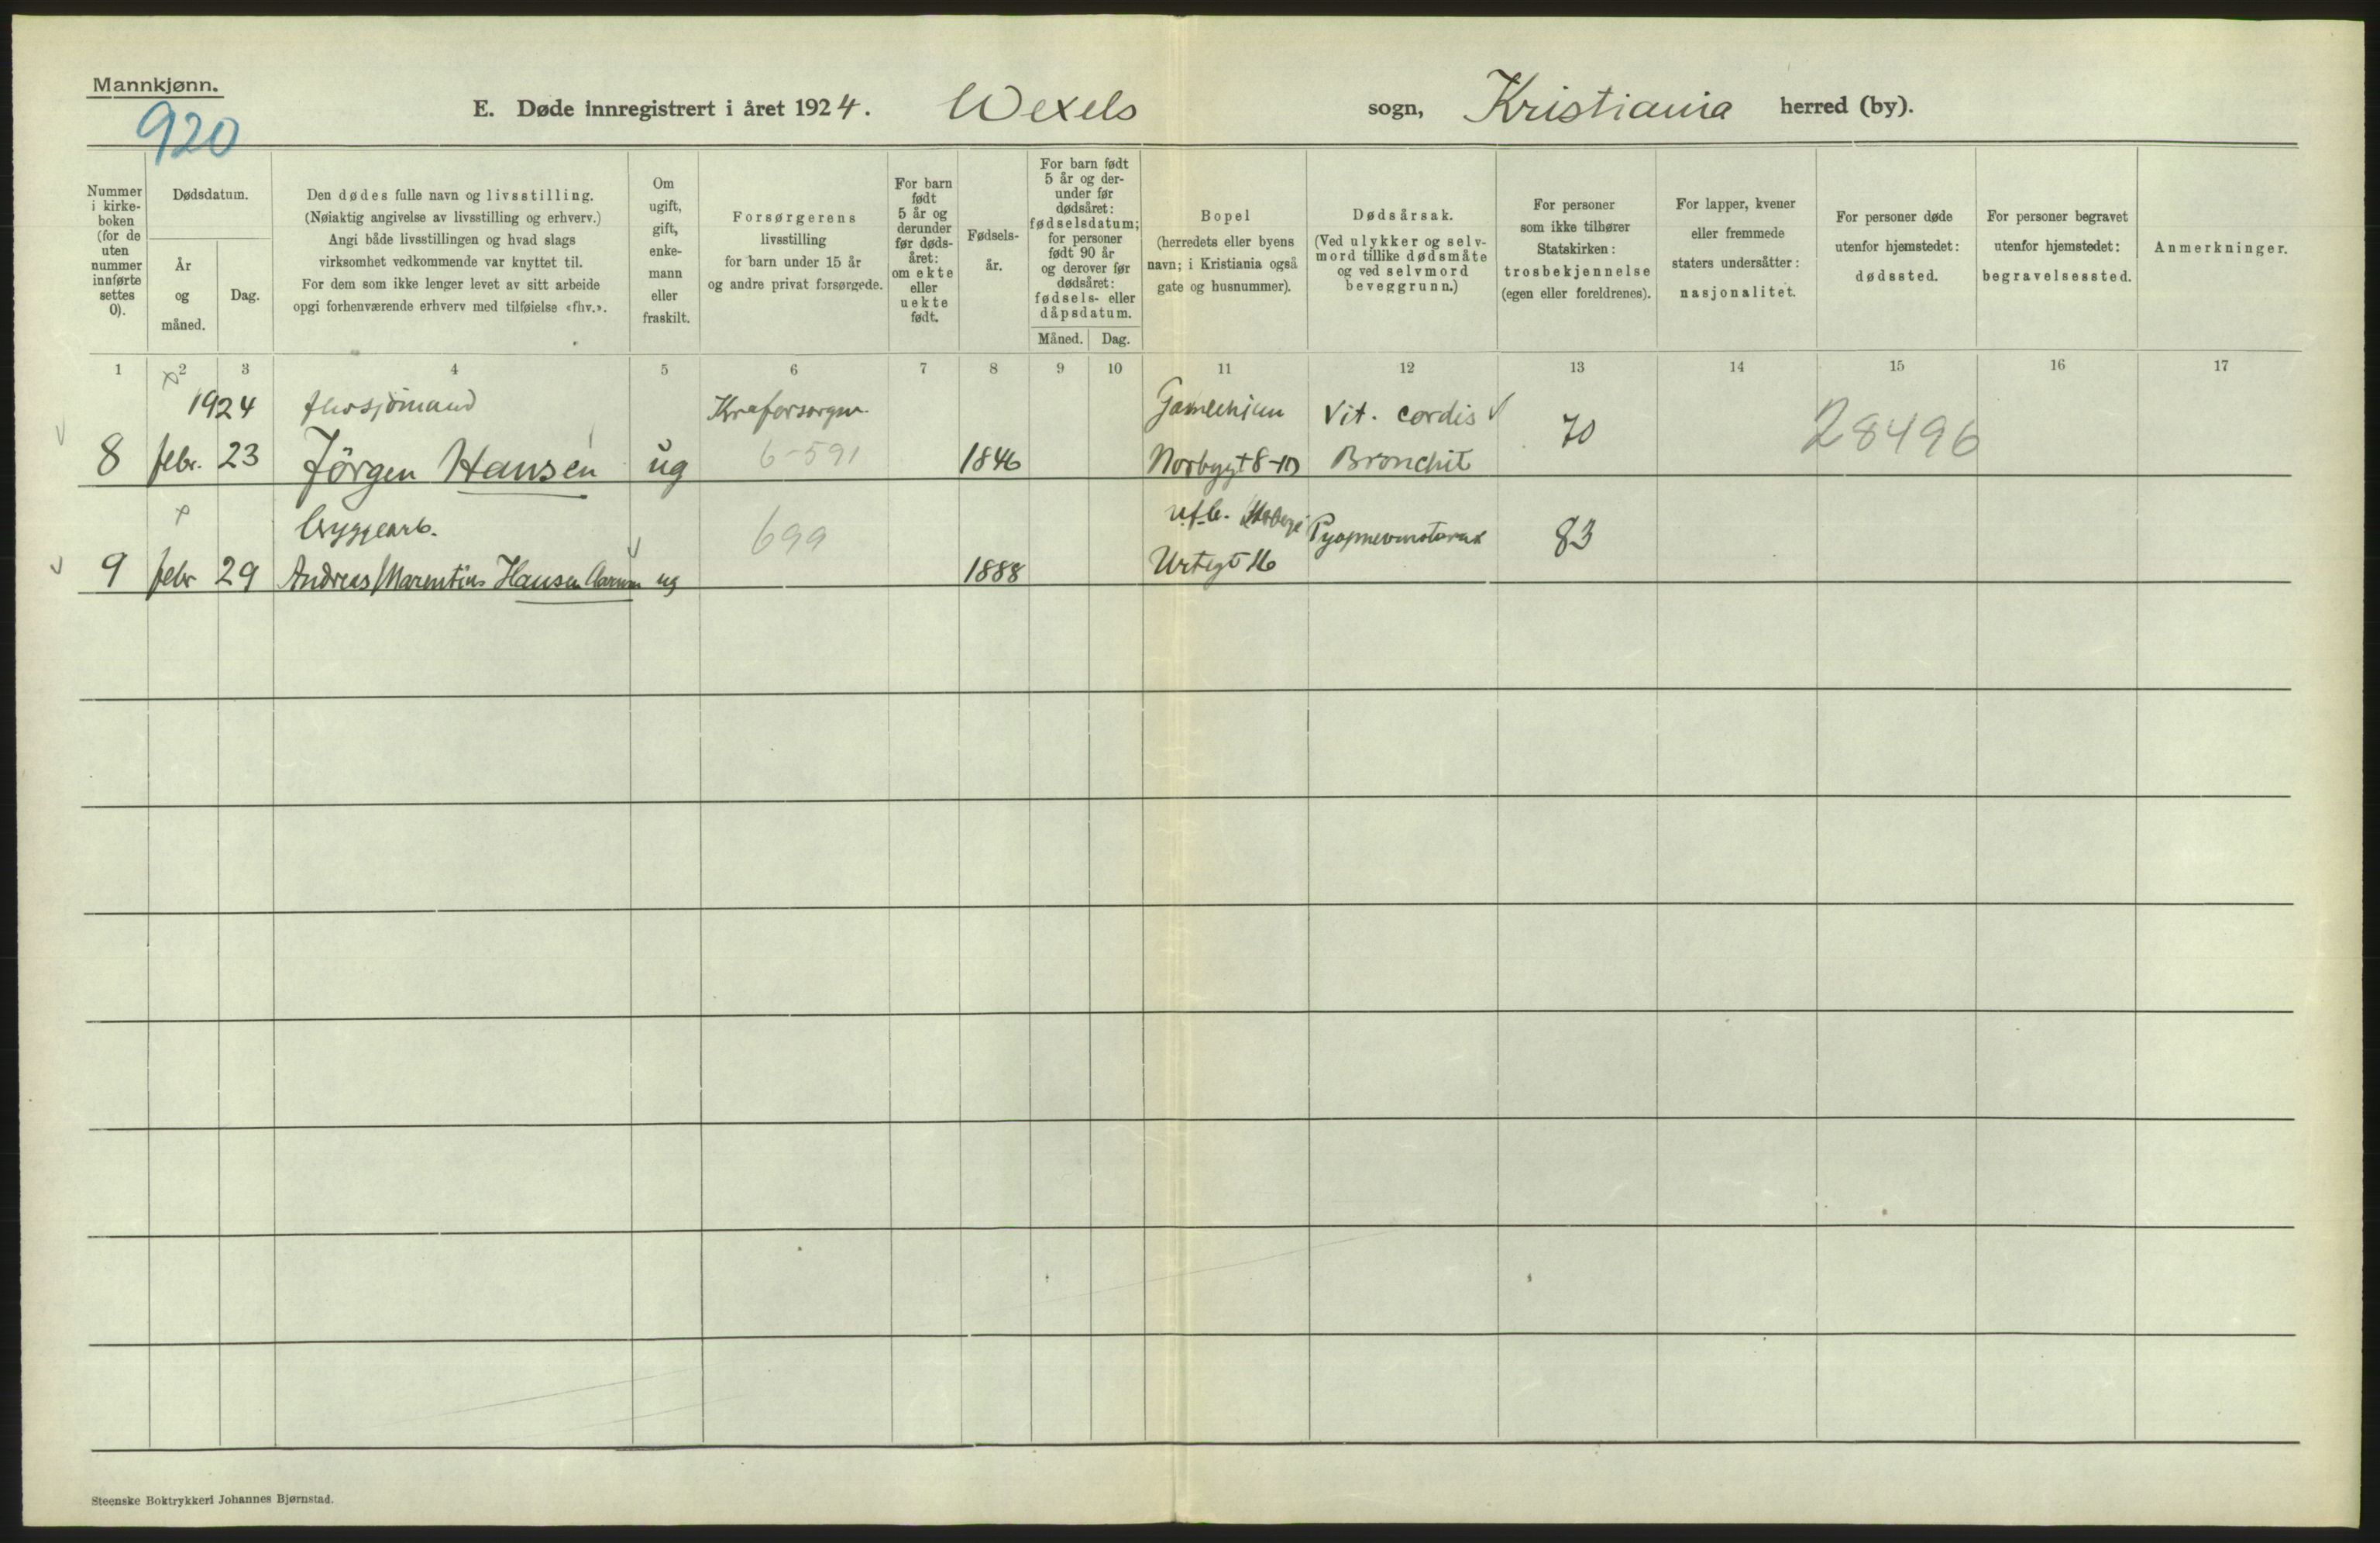 Mannkjønn.
920
E. Døde innregistrert i året 1924. Wexels sogn, Kristiania herred (by).
Nummer i kirke- boken (for de uten nummer innførte settes 0).
Dødsdatum.
År og måned.
Dag.
Den dødes fulle navn og livsstilling.
(Nøiaktig angivelse av livsstilling og erhverv.)
Angi både livsstillingen og hvad slags
virksomhet vedkommende var knyttet til.
For dem som ikke lenger levet av sitt arbeide
opgi forhenværende erhverv med tilføielse «fhv.».
Om ugift, gift, enke- mann eller fraskilt.
Forsørgerens
livsstilling
for barn under 15 år
og andre privat forsørgede.
For barn født 5 år og derunder før døds- året: om ekte eller uekte født.
Fødsels- år.
For barn født 5 år og der- under før dødsåret: fødselsdatum; for personer født 90 år og derover før dødsåret: fødsels- eller dåpsdatum.
Måned. Dag.
Bopel
(herredets eller byens
navn; i Kristiania også
gate og husnummer).
Dødsårsak.
(Ved ulykker og selv-
mord tillike dødsmåte
og ved selvmord
beveggrunn.)
For personer
som ikke tilhører
Statskirken:
trosbekjennelse
(egen eller foreldrenes).
For lapper, kvener
eller fremmede
staters undersåtter:
nasjonalitet.
For personer døde
utenfor hjemstedet:
dødssted.
For personer begravet
utenfor hjemstedet:
begravelsessted.
Anmerkninger.
1 2 3 4 5 6 7 8 9 10 11 12 13 14 15 16 17
1924 fhv sjømand Gamlehjem Vit. cordis 70 28496
8 febr. 23 Jörgen Hansen ug 6-591 1846 Norbygt 8-10 Bronchit
Byggearb. 699 83
9 febr 29 Andreas Marentius Hansen ug 1888 Urtegt 16
Steenske Boktrykkeri Johannes Bjørnstad.